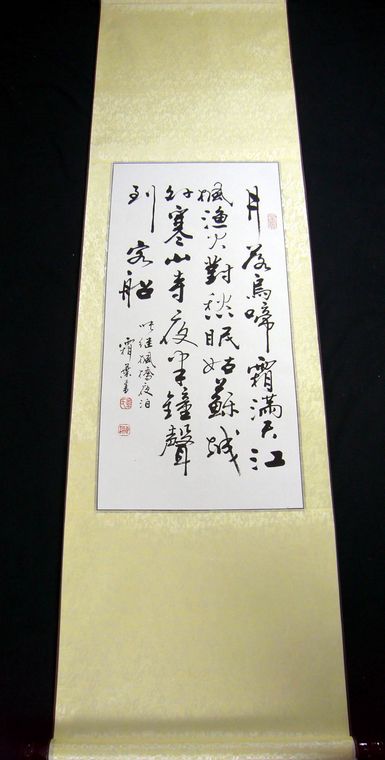 月落烏啼霜滿天江
楓漁火對愁眠姑蘇城
外寒山寺夜半鐘聲
到客船
张继楓橋夜泊
霜書